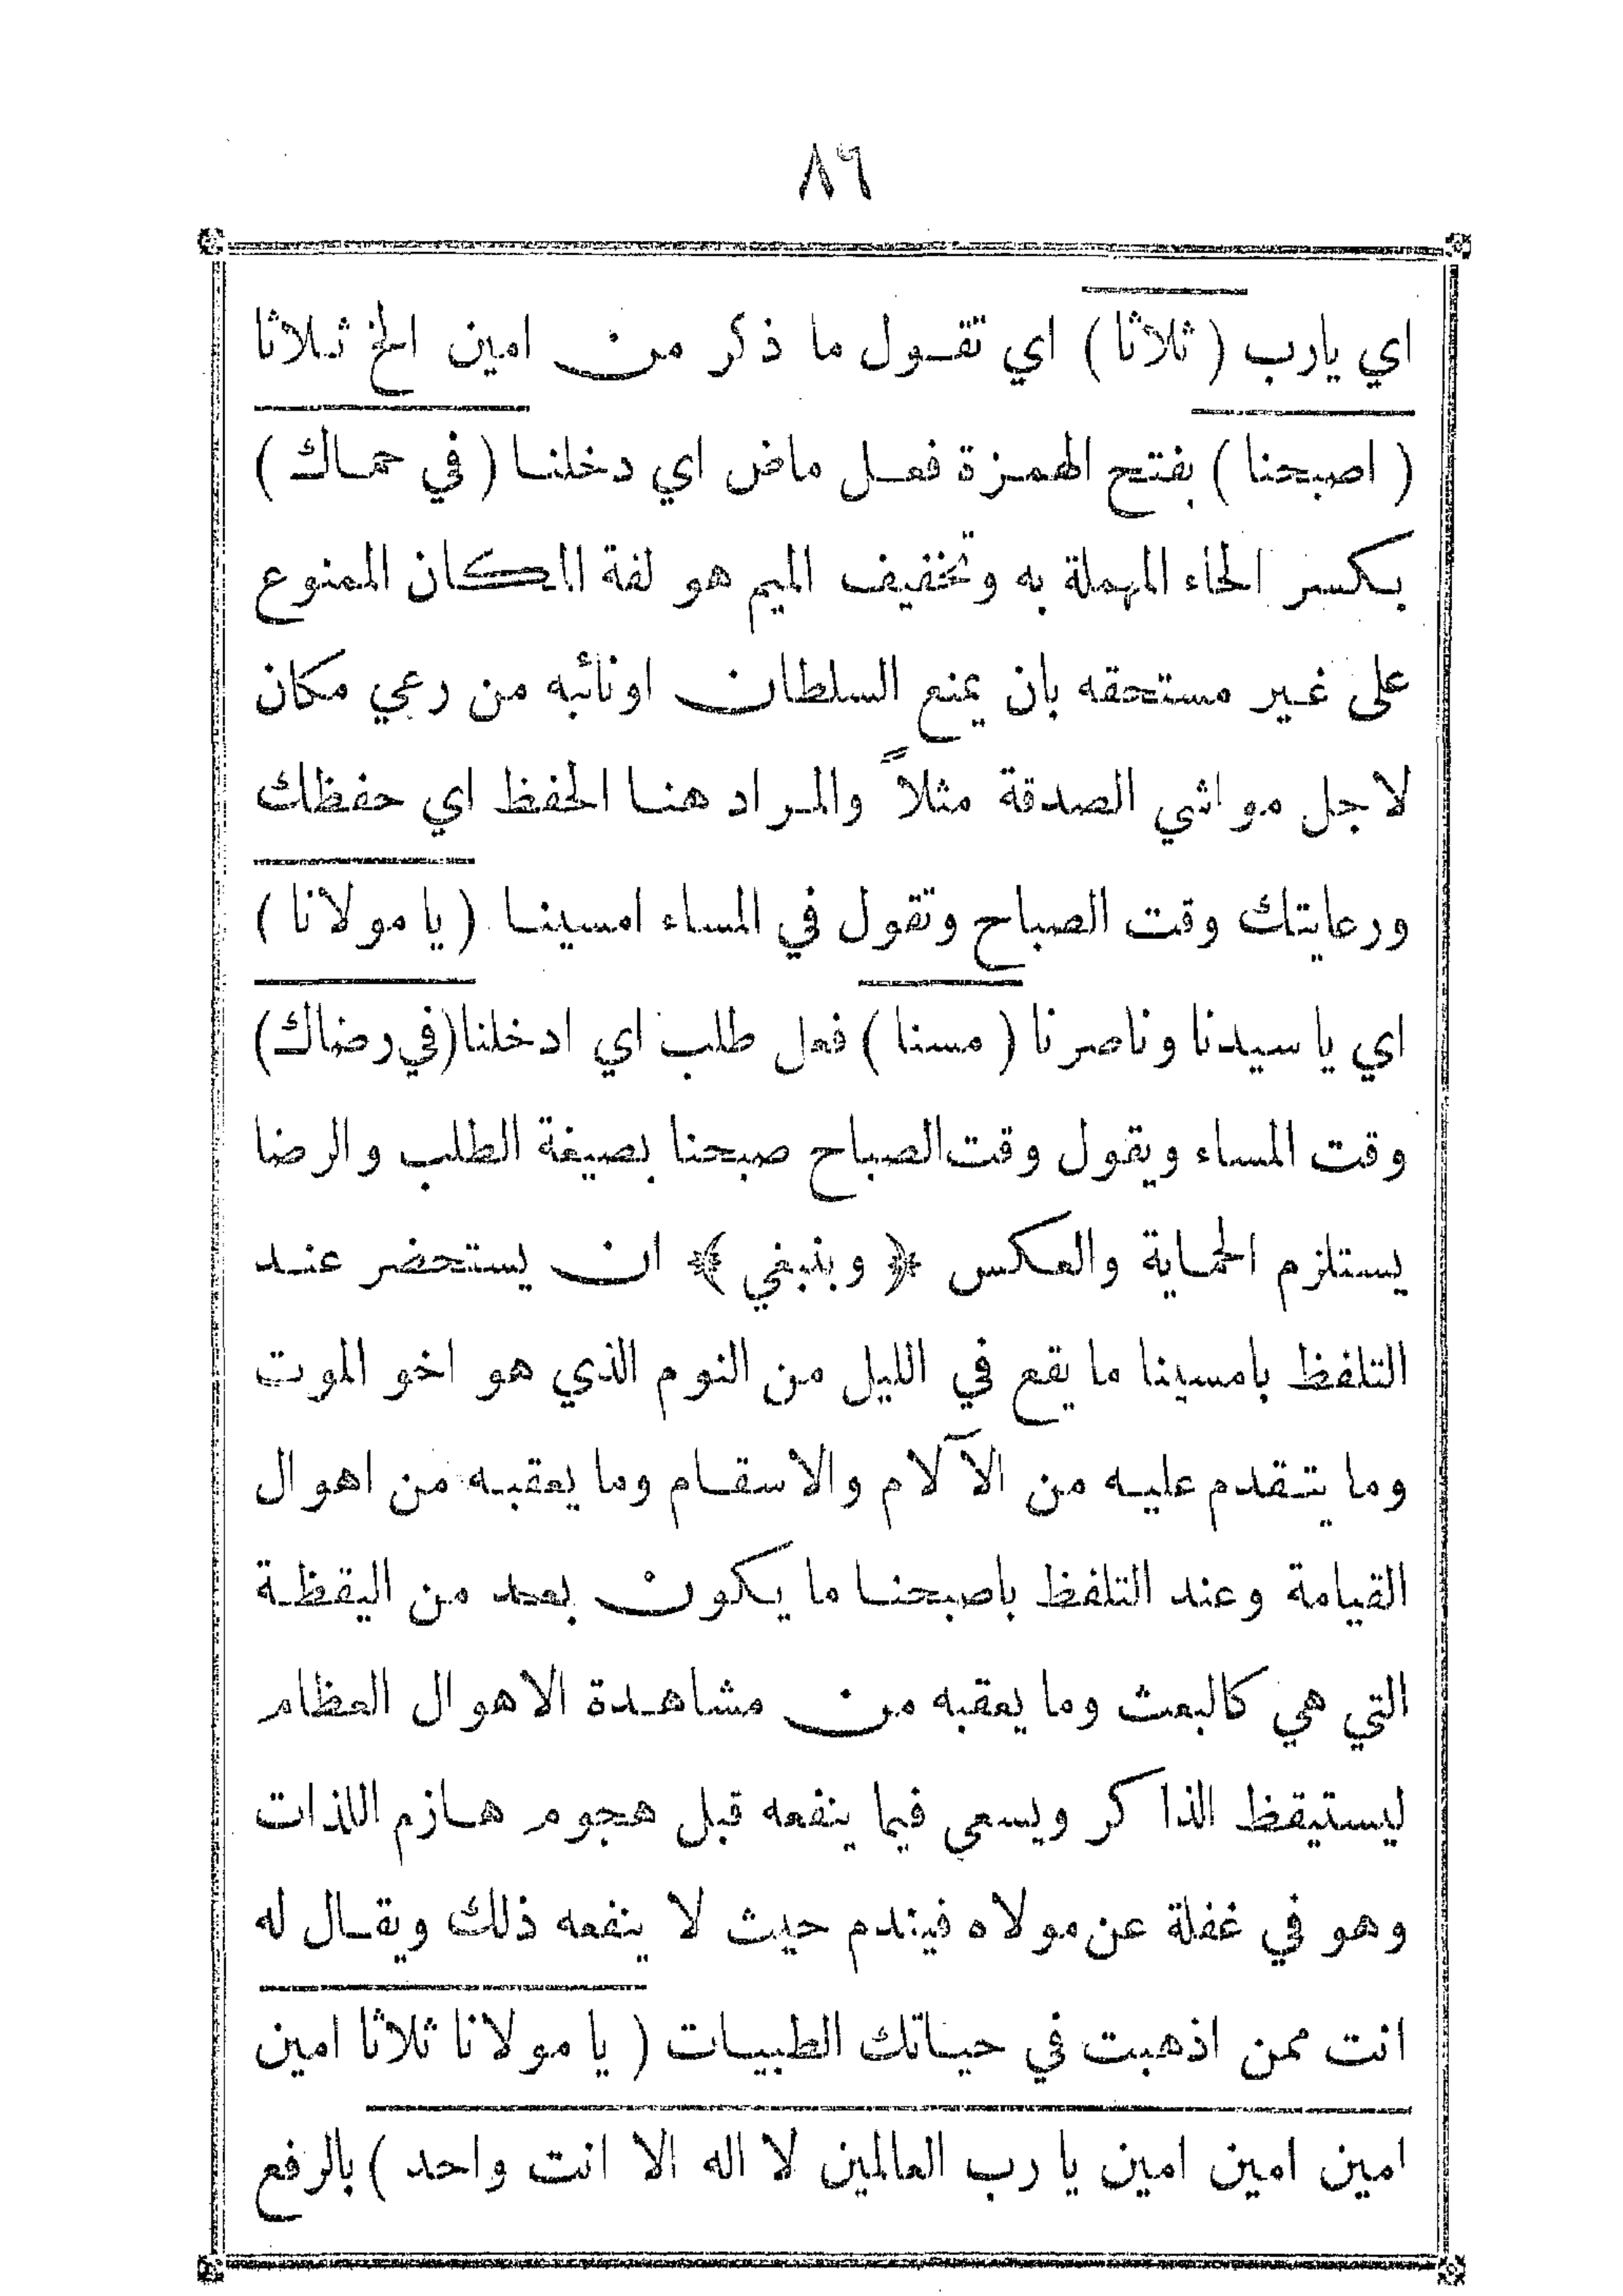 ٨٩
اي يارب ( ثلاثا ) اي تقول ما ذكر من امين الخ ثلاثا
( اصبحنا ) بفتح الهمزة فعل ماض اي دخلنا ( في حماك )
بكسر الحاء المهملة به وتخفيف الميم هو لغة المكان الممنوع
على غير مستحقه بان يمنع السلطان اونائبه من رعي مكان
لاجل مواشي الصدقة مثلاً والمراد هنا الحفظ اي حفظك
ورعايتك وقت الصباح وتقول في المساء امسينا ( يا مولانا )
اي يا سيدنا وناصرنا ( مسنا ) فعل طلب اي ادخلنا (في رضاك)
وقت المساء ويقول وقت الصباح صبحنا بصيغة الطلب والرضا
يستلزم الحماية والعكس ﴿ وينبغي ﴾ ان يستحضر عند
التلفظ بامسينا ما يقع في الليل من النوم الذي هو اخو الموت
وما يتقدم عليه من الآلام والاسقام وما يعقبه من اهوال
القيامة وعند التلفظ باصبحنا ما يكون بعد من اليقظة
التي هي كالبعث وما يعقبه من مشاهدة الاهوال العظام
ليستيقظ الذاكر ويسعى فيما ينفعه قبل هجوم هازم اللذات
وهو في غفلة عن مولاه فيندم حيث لا ينفعه ذلك ويقال له
انت ممن اذهبت في حياتك الطيبات ( يا مولانا ثلاثا امين
امين امين امين يا رب العالمين لا اله الا انت واحد ) بالرفع